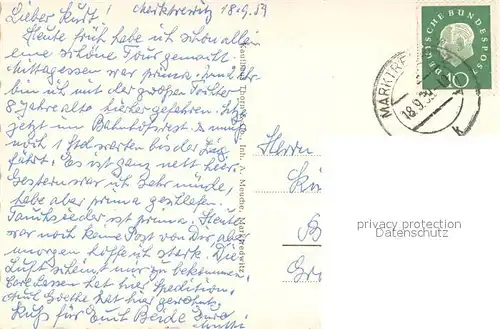 Marktredwitz 18.9.59
Lieber Kurt!
Heute früh habe ich schon allein
eine schöne Tour gemacht.
Mittagessen war prima, und
bin ich mit der großen Tochter
8 Jahre alt hierher gefahren. Sitze
jetzt im Bahnhofsrest. & muß
noch 1 Std warten bis der Zug
fährt. Es ist ganz nett hier.
Gestern war ich sehr müde,
habe aber prima geschlafen.
ist prima. Heute
war noch keine Post von Dir, aber
morgen hoffe ich stark. Die
Luft scheint mir zu bekommen.
hat hier Spedition.
Auch Goethe hat hier gewohnt.
Kuß für Euch Beide Eure
Mutti
Inh. A. Meuche, Marktredwitz
DEUTSCHE BUNDESPOST
10
MARKTRE
18.9.59
k
Herrn
privacy protection
Datenschutz